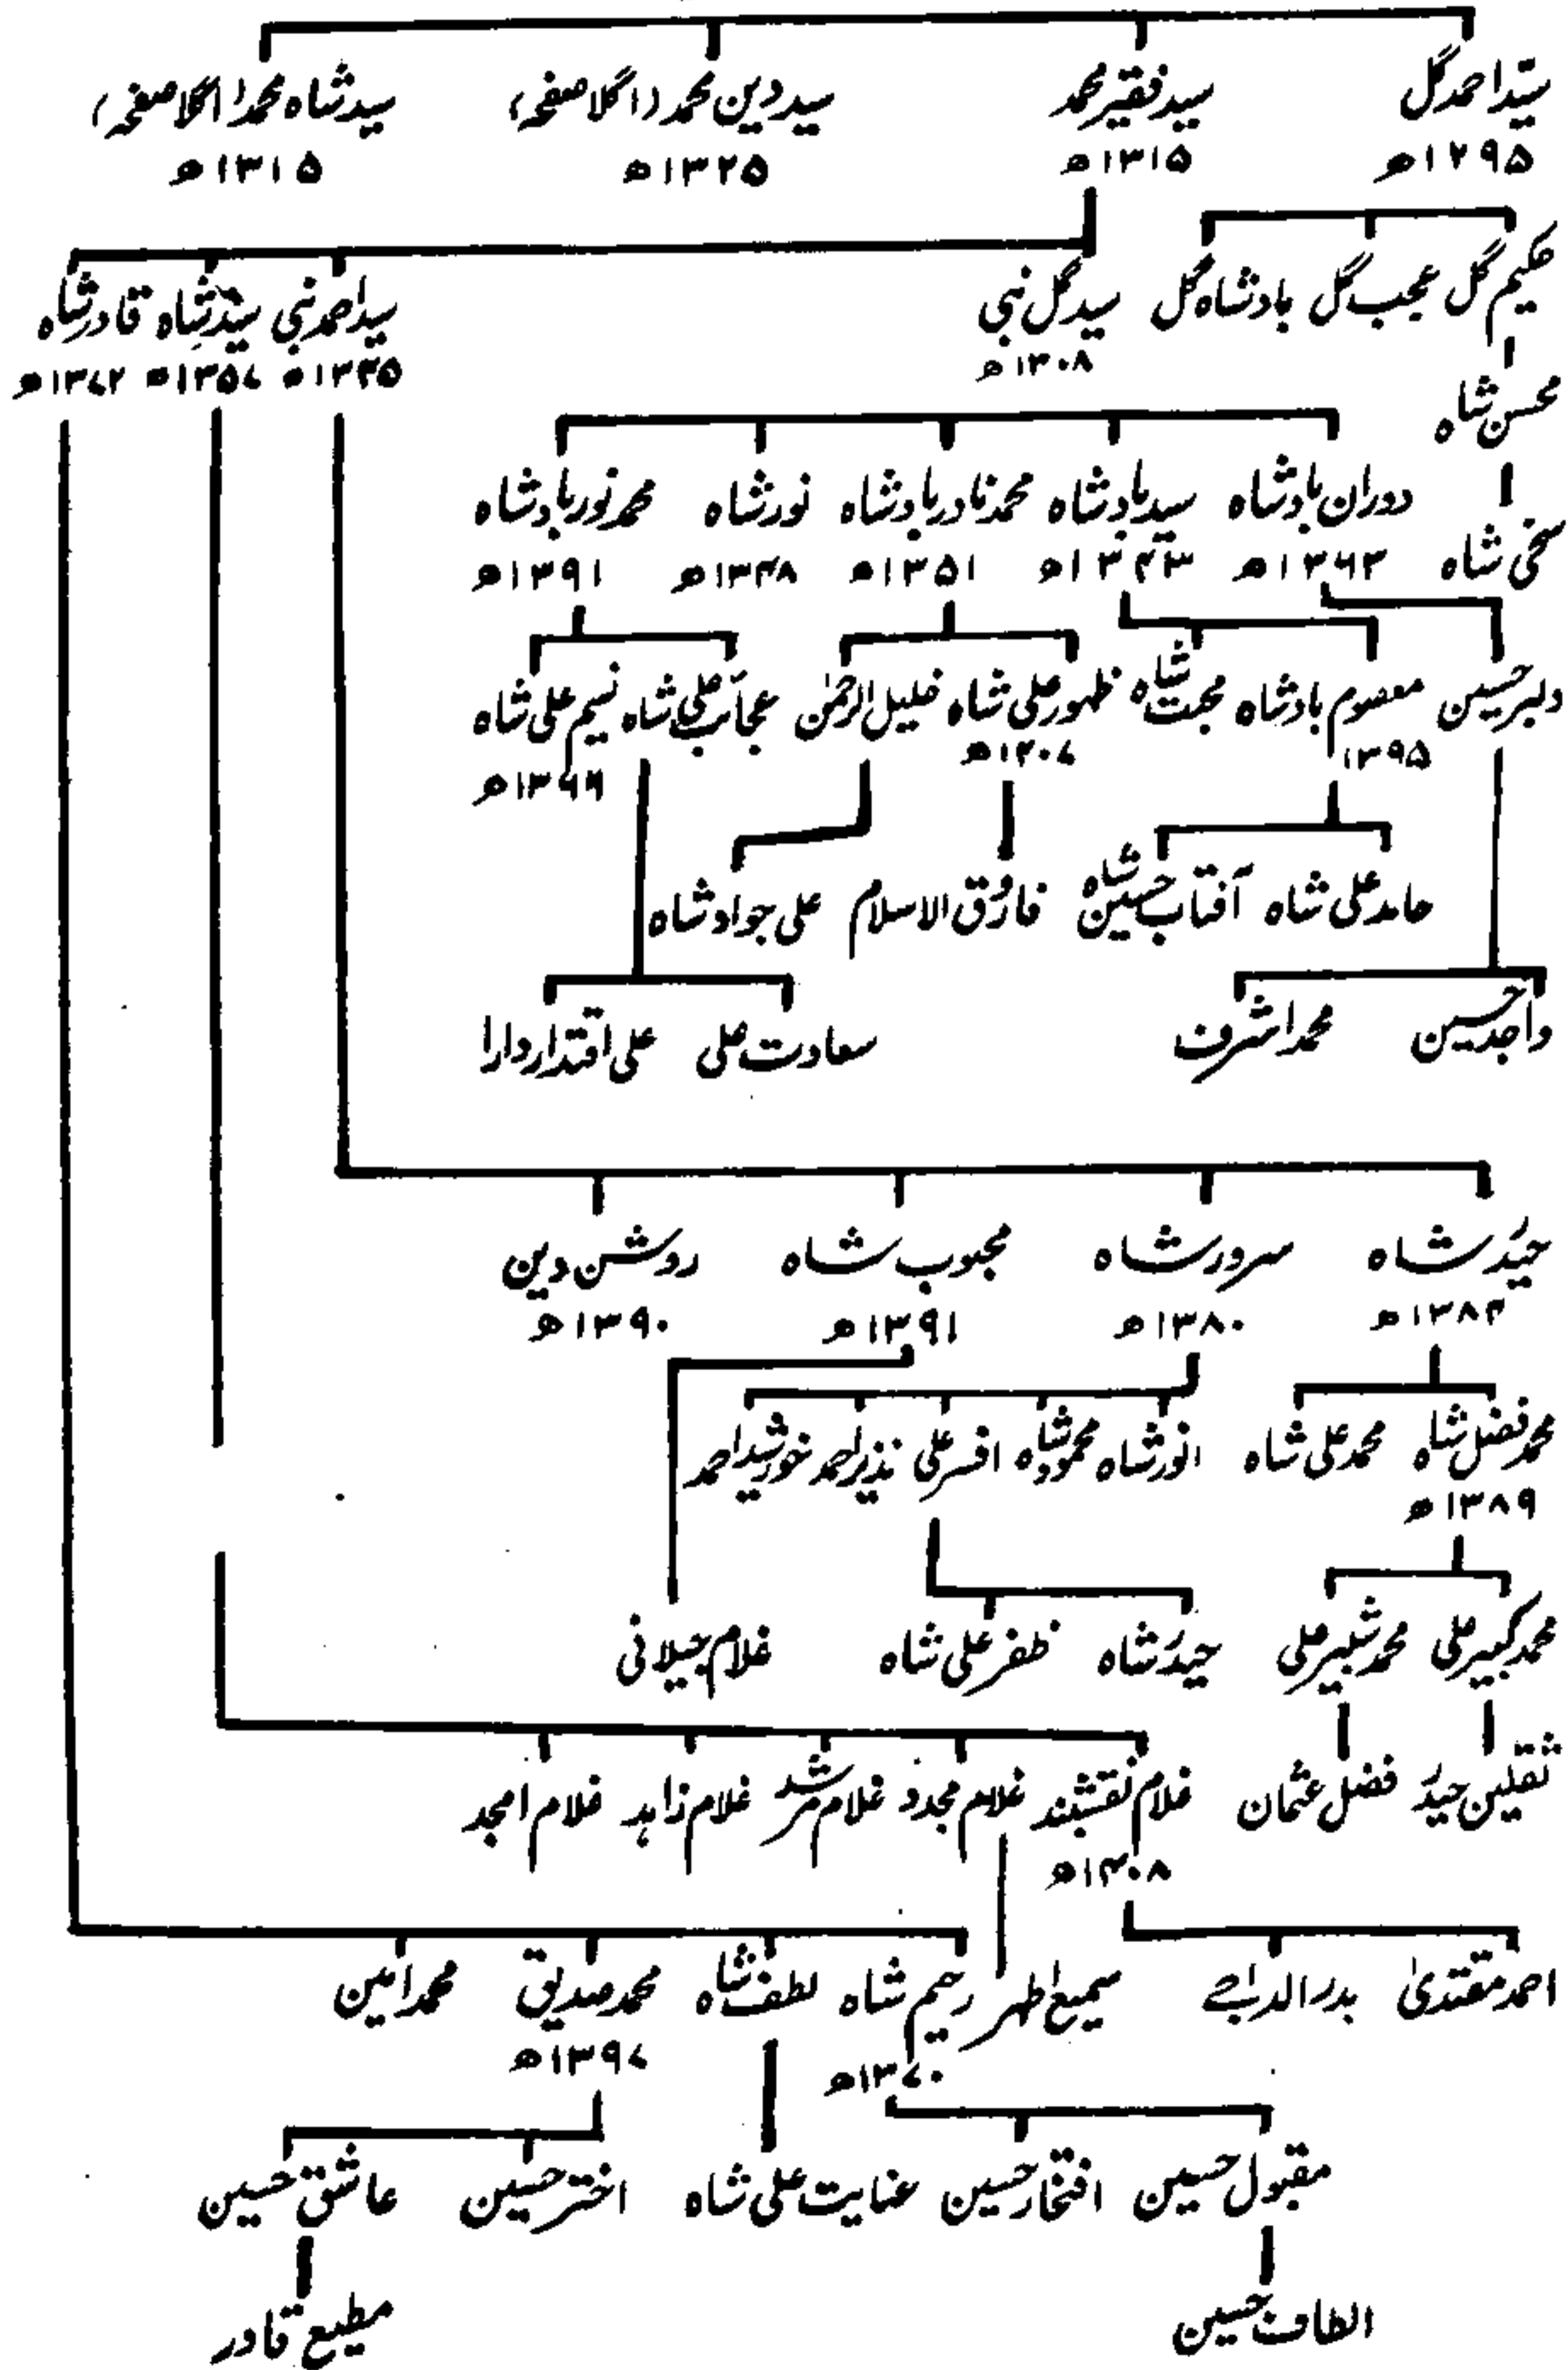 سید احمد گل سید فقیر محمد سید دین محمد (اگلا صفحہ) سید شاہ محمد (اگلا صفحہ)
۱۲۹۵ھ ۱۳۱۵ھ ۱۳۲۵ھ ۱۳۱۵ھ
حکیم گل عجب گل بادشاہ گل سید گل نبی سید احمد نبی سید شاہ قادر شاہ
۱۳۰۸ھ ۱۳۴۵ھ ۱۳۵۷ھ ۱۳۷۲ھ
محسن شاہ
دوران بادشاہ سید بادشاہ محمد نادر بادشاہ نور شاہ محمد نور بادشاہ
سخی شاہ ۱۳۶۳ھ ۱۳۴۳ھ ۱۳۵۱ھ ۱۳۴۸ھ ۱۳۹۱ھ
دلبر حسین معصوم بادشاہ محبت شاہ ظہور علی شاہ خلیل الرحمٰن عجائب علی شاہ نسیم علی شاہ
۱۳۹۵ ۱۴۰۷ھ ۱۳۶۶ھ
حامد علی شاہ آفتاب حسین شاہ فاروق الاسلام علی جواد شاہ
واجد حسین محمد اشرف سعادت علی علی اقتدار دارا
حیدر شاہ سرور شاہ محبوب شاہ روشن دین
۱۳۸۴ھ ۱۳۸۰ھ ۱۳۹۱ھ ۱۳۹۰ھ
محمد فضل شاہ محمد علی شاہ انور شاہ محمود شاہ افسر علی نذیر احمد خورشید احمد
۱۳۸۹ھ
محمد کبیر علی محمد شبیر علی حیدر شاہ ظفر علی شاہ غلام جیلانی
ثقلین حیدر فضل عثمان غلام نقشبند غلام مجدد غلام مرشد غلام زاہد غلام امجد
۱۴۰۸ھ
احمد مقتدیٰ بدر الدجےٰ سمیع اطہر رحیم شاہ لطف شاہ محمد صدیق محمد امین
۱۳۷۰ھ ۱۳۹۷ھ
مقبول حسین افتخار حسین عنایت علی شاہ اختر حسین عاشق حسین
الطاف حسین مطیع قادر